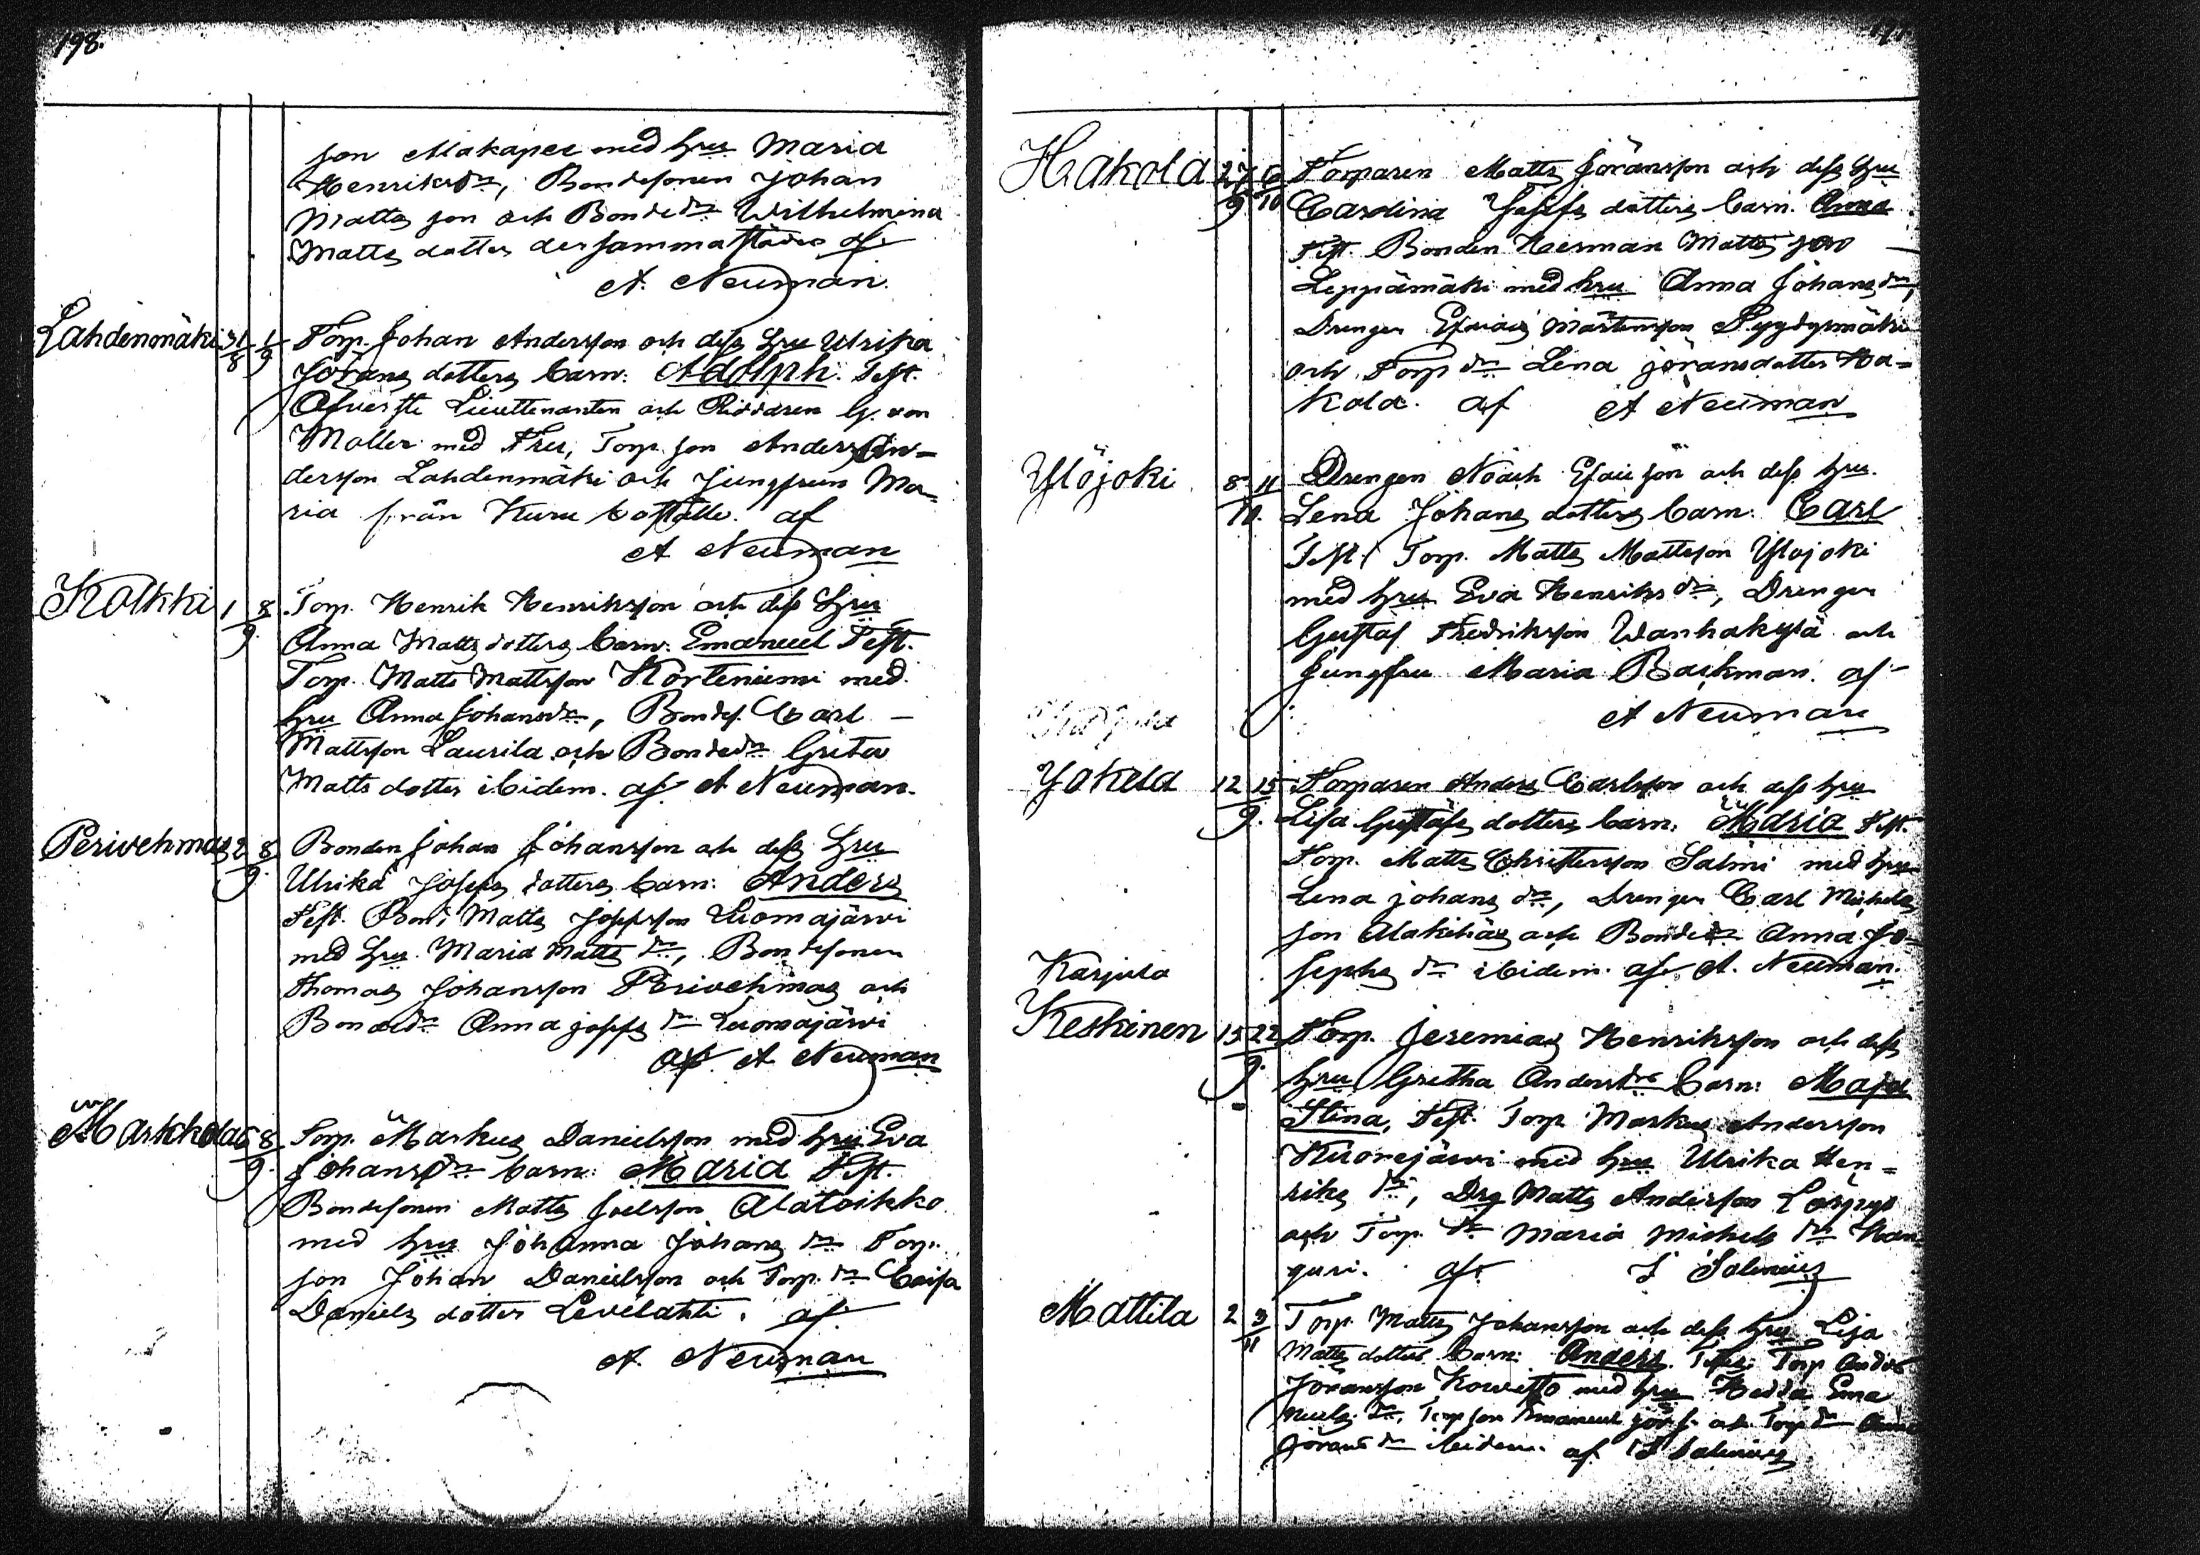 198.
son Makapee med hru Maria
Henriksdr, Bondesonen Johan
Matts son och Bondedr Wilhelmina
Matts dotter dersammastädes af
A. Neuman.
Lahdenmäki 31/8 1/9 Torp. Johan Andersson och dess hru Ulrika
Jörans dotters barn: Adolph. Test.
Öfverste Lieuttenanten och Riddaren G. von
Moller med Fru, Torp. son Anders An-
dersson Lahdenmäki och Jungfrun Ma-
ria från Kuru boställe. af
A Neuman
Kolkki 1 8/9 Torp. Henrik Henriksson och dess hru
Anna Matts dotters barn: Emanuel Test.
Torp. Matts Mattsson Korteniemi med
hru Anna Johansdr, Bondes. Carl –
Mattsson Laurila och Bondedr Greta
Matts dotter ibidem. af A Neuman.
Perivehmas 2 8/9 Bonden Johan Johansson och dess hru
Ulrika Josefs dotters barn: Anders
Test. Bond. Matts Josefsson Luomajärvi
med hru Maria Matts dr, Bondesonen
Thomas Johansson Perivehmas och
Bondedr Anna Josefs dr Luomajärvi
af A Neuman
Markkola 6 8/9 Torp. Markus Danielsson med hru Eva
Johansdr barn: Maria Test.
Bondesonen Matts Joelsson Alatoikko
med hru Johanna Johans dr Torp.
son Johan Danielsson och Torp. dr Caisa
Daniels dotter Levelahti. af
A. Neuman
Hakola 27/9 6/10 Torparen Matts Jöransson och dess hru
Carolina Josefs dotters barn. Anna
Test. Bonden Herman Matts son
Leppämäki med hru Anna Johans dr,
Drengen Esaias Mårtensson Pyydysmäki
och Torp dr Lena Jöransdotter Ha-
kola. af A Neuman
Ylöjoki 8 11/10. Drengen Noach Esaie son och dess hru.
Lena Johans dotters barn: Carl
Test. Torp. Matts Mattsson Ylöjoki
med hru Eva Henriks dr, Drengen
Gustaf Fredriksson Wanhakylä och
Jungfru Maria Backman. af
A Neuman
Jokela 12 15/9. Torparen Anders Carlsson och dess hru
Lisa Gustafs dotters barn: Maria Test.
Torp. Matts Christersson Salmi med hru
Lena Johans dr, Drengen Carl Michels
son Alakihäs och Bondedr Anna Jo-
sephs dr ibidem. af A. Neuman.
Karjula
Keskinen 15 22/9. Torp. Jeremias Henriksson och dess
hru Gretha Andersdrs barn: Maja
Stina, Test. Torp. Markus Andersson
Kuorejärvi med hru Ulrika Hen-
riks dr, Drg Matts Andersson
och Torp. dr Maria Michels dr Kan-
guri. af
Mattila 2 3/11 Torp. Matts Johansson och dess hru Lisa
Matts dotters barn: Anders. Torp Anders
Jöransson med hru Hedda Ema
nuels dr, Torp son Emanuel och Torp dr Anna
Jörans dr ibidem. af